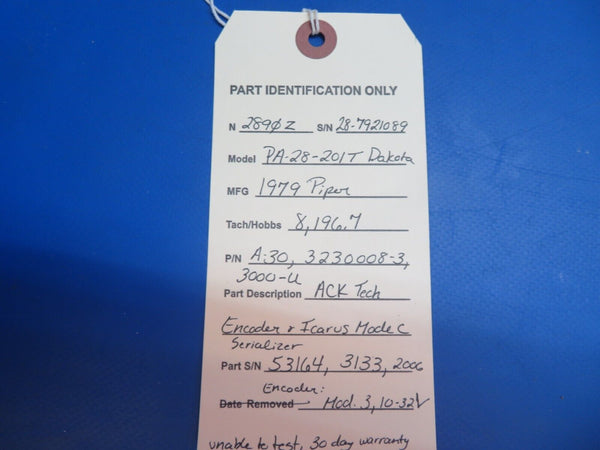 PART IDENTIFICATION ONLY
N 289ØZ S/N 28-7921089
Model PA-28-201T Dakota
MFG 1979 Piper
Tach/Hobbs 8,196.7
P/N A:30, 3230008-3,
3000-U
Part Description ACK Tech
Encoder & Icarus Mode C
Serializer
Part S/N 53164, 3133, 2006
Encoder:
Date Removed Mod. 3, 10-32V
unable to test, 30 day warranty